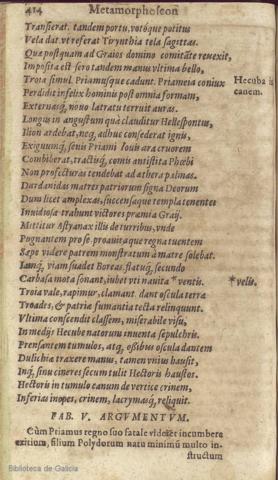 414 Metamorphoseon
Transierat. tandem portu, votóque potitus
Vela dat vt referat Tirynthia tela sagittas.
Quæ postquam ad Graios domino comitãte reuexit,
Imposita est sero tandem manus vltima bello,
Troia simul Priamusque cadunt. Priameia coniux
Hecuba in
canem.
Perdidit infelix hominis post omnia formam,
Externasq́; nouo latratu terruit auras.
Longus in angustum quà clauditur Hellespontus,
Ilion ardebat, neq; adhuc consederat ignis,
Exiguumq́; senis Priami Iouis ara cruorem
Combiberat, tractisq́; comis antistita Phœbi
Non profecturas tendebat ad æthera palmas.
Dardanidas matres patriorum signa Deorum
Dum licet amplexas, succensaque templa tenentes
Inuidiosa trahunt victores præmia Graij.
Mittitur Astyanax illis de turribus, vnde
Pugnantem pro se, proauitáque regna tuentem
Sæpe videre patrem monstratum à matre solebat.
Iamq́; viam suadet Boreas, flatuq́; secundo
Carbasa mota sonant, iubet vti nauita * ventis.
* velis.
Troia vale, rapimur, clamant. dant oscula terræ
Troades, & patriæ fumantia tecta relinquunt.
Vltima conscendit classem, miserabile visu,
In medijs Hecube natorum inuenta sepulchris.
Prensantem tumulos, atq; ossibus oscula dantem
Dulichiæ traxere manus, tamen vnius hausit,
Inq́; sinu cineres secum tulit Hectoris haustos.
Hectoris in tumulo canum de vertice crinem,
Inferias inopes, crinem, lacrymasq́; reliquit.
FAB. V. ARGVMENTVM.
Cùm Priamus regno suo fatale videret incumbere
exitium, filium Polydorum natu minimũ multo in-
structum
Biblioteca de Galicia